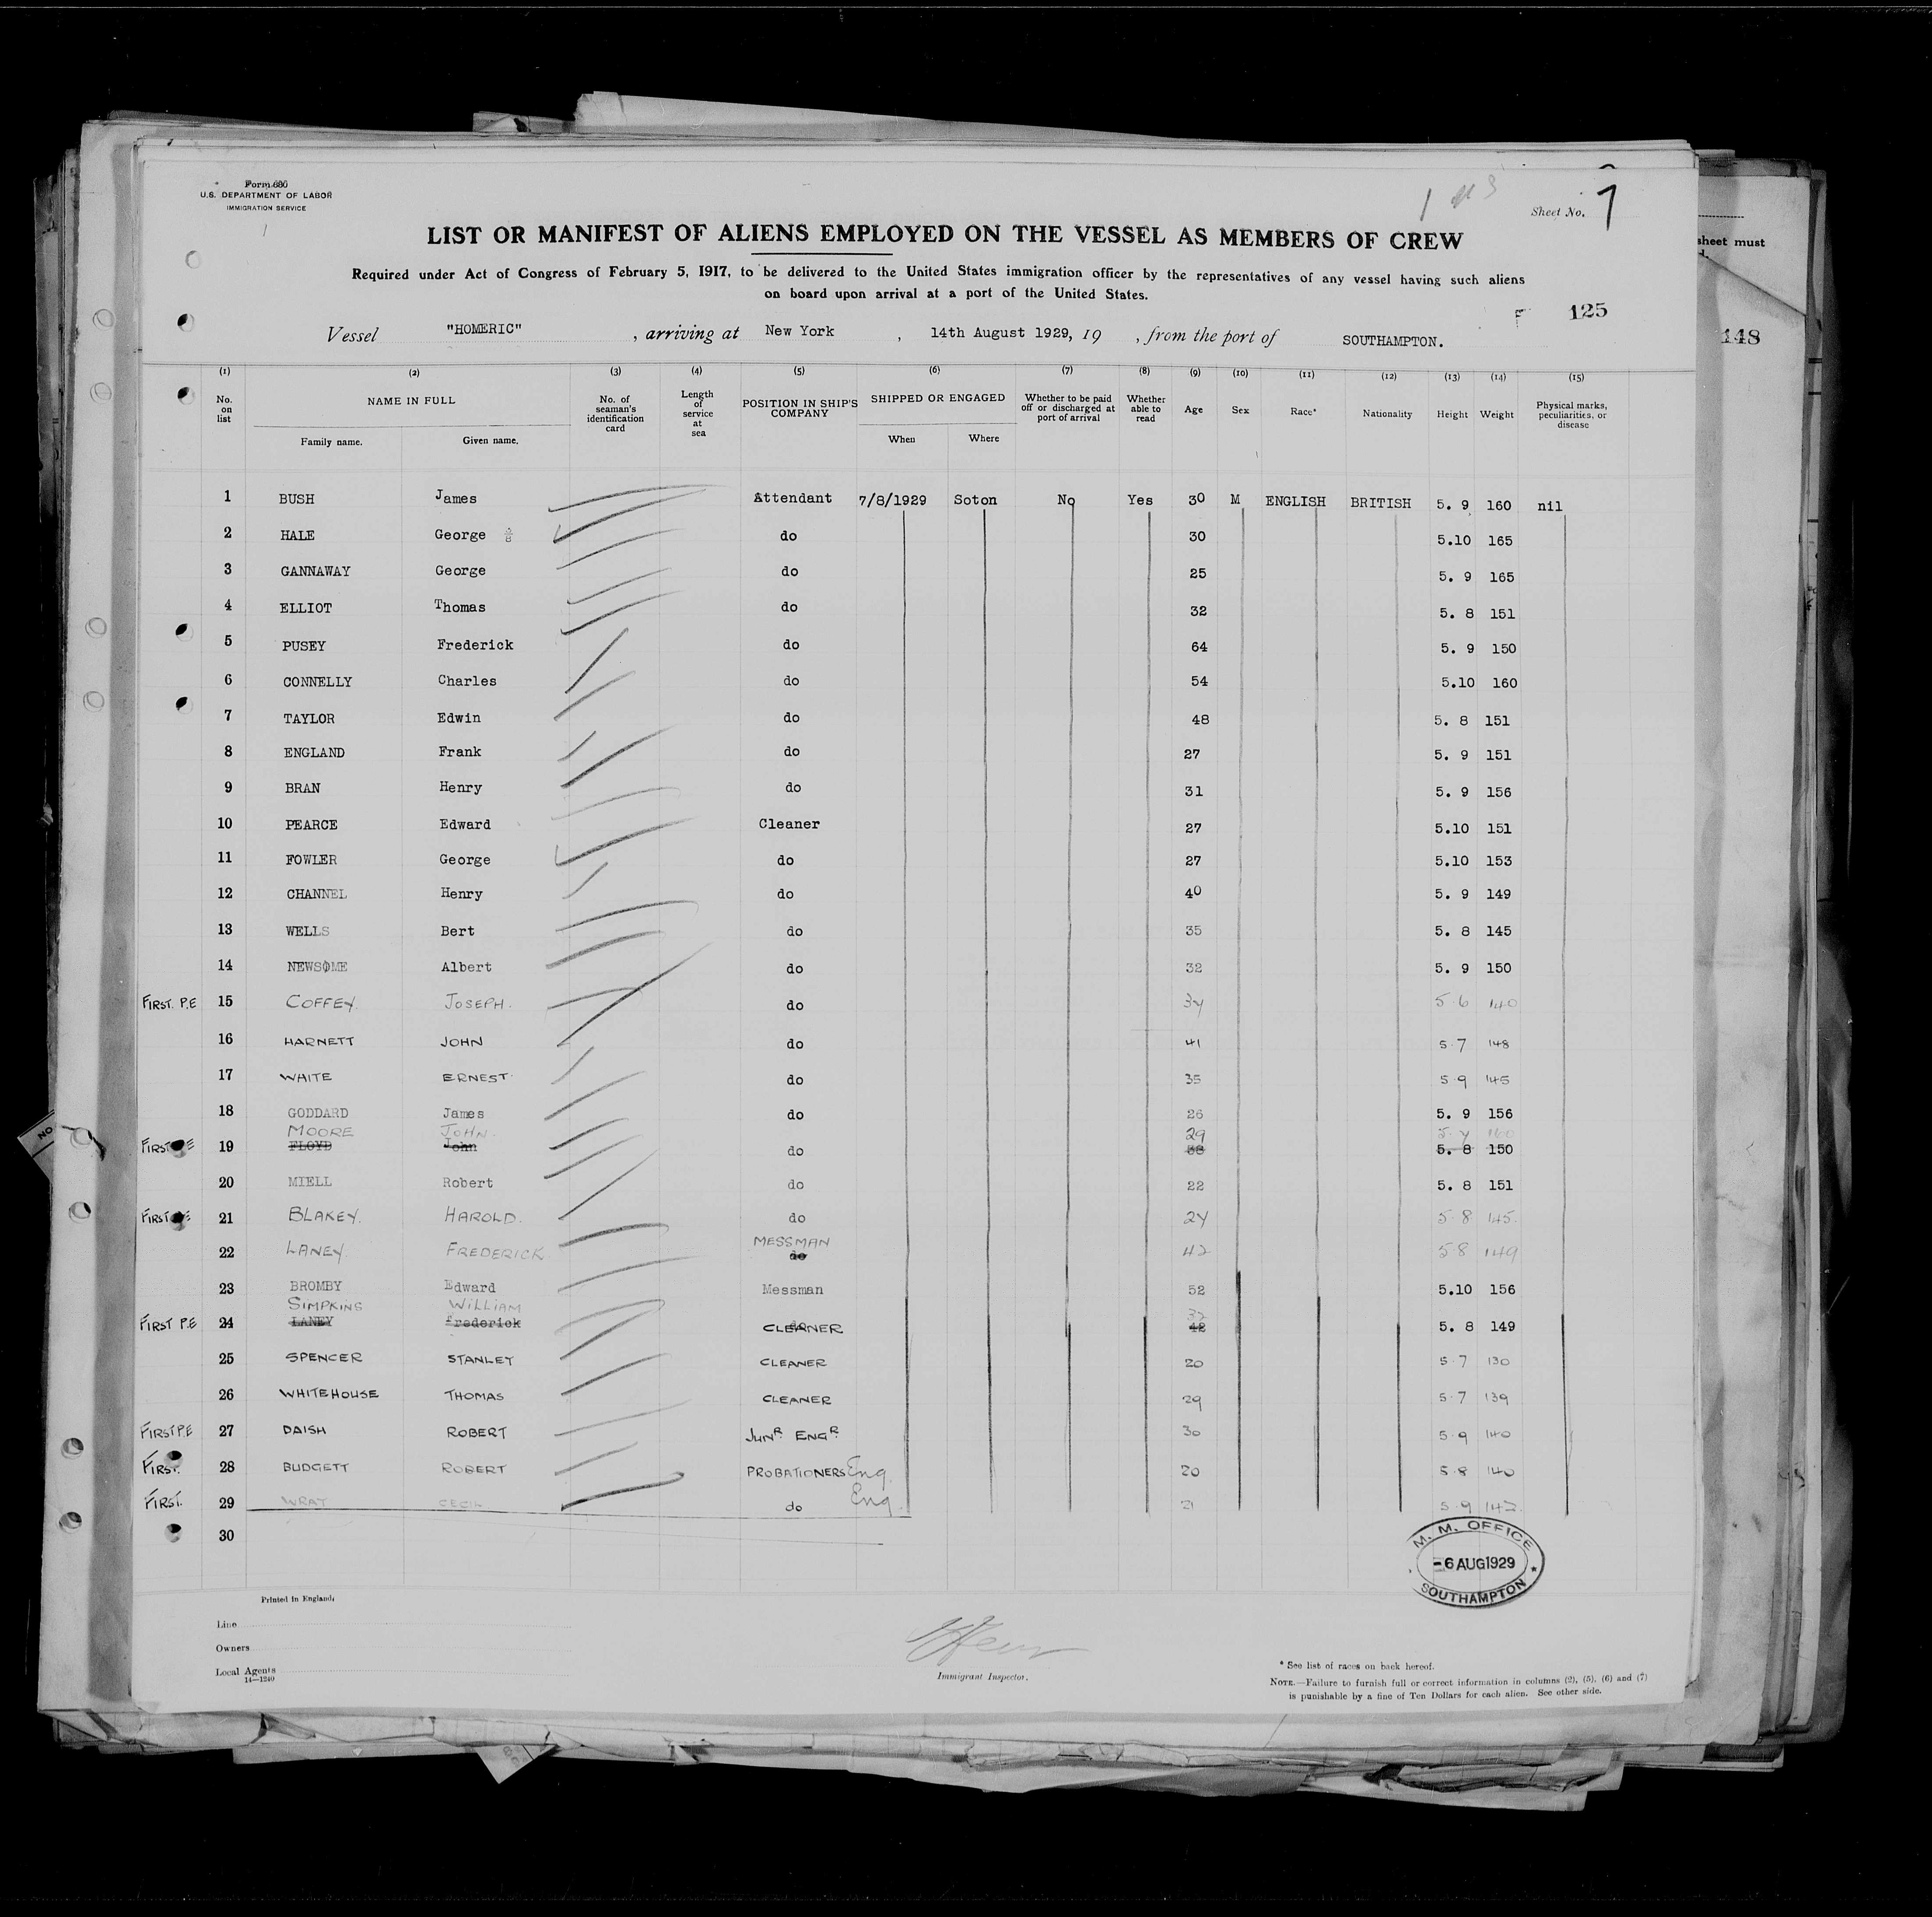 Form 680
U.S. DEPARTMENT OF LABOR
IMMIGRATION SERVICE
Sheet No. 7
sheet must
LIST OR MANIFEST OF ALIENS EMPLOYED ON THE VESSEL AS MEMBERS OF CREW
Required under Act of Congress of February 5, 1917, to be delivered to the United States immigration officer by the representatives of any vessel having such aliens
on board upon arrival at a port of the United States.
125
148
Vessel "HOMERIC" , arriving at New York , 14th August 1929, 19 , from the port of SOUTHAMPTON.
(1) (2) (3) (4) (5) (6) (7) (8) (9) (10) (11) (12) (13) (14) (15)
No. on list NAME IN FULL Family name. Given name. No. of seaman's identification card Length of service at sea POSITION IN SHIP'S COMPANY SHIPPED OR ENGAGED When Where Whether to be paid off or discharged at port of arrival Whether able to read Age Sex Race* Nationality Height Weight Physical marks, peculiarities, or disease
1 BUSH James Attendant 7/8/1929 Soton No Yes 30 M ENGLISH BRITISH 5. 9 160 nil
2 HALE George do 30 5.10 165
3 GANNAWAY George do 25 5. 9 165
4 ELLIOT Thomas do 32 5. 8 151
5 PUSEY Frederick do 64 5. 9 150
6 CONNELLY Charles do 54 5.10 160
7 TAYLOR Edwin do 48 5. 8 151
8 ENGLAND Frank do 27 5. 9 151
9 BRAN Henry do 31 5. 9 156
10 PEARCE Edward Cleaner 27 5.10 151
11 FOWLER George do 27 5.10 153
12 CHANNEL Henry do 40 5. 9 149
13 WELLS Bert do 35 5. 8 145
14 NEWSOME Albert do 32 5. 9 150
FIRST. P.E 15 COFFEY. JOSEPH. do 34 5 6 140
16 HARNETT JOHN do 41 5 7 148
17 WHITE ERNEST. do 35 5 9 145
18 GODDARD James do 26 5. 9 156
MOORE JOHN. 29
FIRST 19 FLOYD John do 38 5. 8 150
20 MIELL Robert do 22 5. 8 151
FIRST 21 BLAKEY. HAROLD. do 24 5 8 145.
MESSMAN
22 LANEY. FREDERICK do 42 5 8 149
23 BROMBY Edward Messman 52 5.10 156
SIMPKINS WILLIAM 32
FIRST P.E 24 LANEY Frederick CLEANER 42 5. 8 149
25 SPENCER STANLEY CLEANER 20 5 7 130
26 WHITEHOUSE THOMAS CLEANER 29 5 7 139
FIRST P.E 27 DAISH ROBERT JUNR. ENGR. 30 5 9 140
FIRST. 28 BUDGETT ROBERT PROBATIONERS Eng. 20 5 8 140
FIRST. 29 WRAY CECIL do Eng. 21 5 9
30
M. M. OFFICE
-6 AUG 1929
SOUTHAMPTON
Printed in England.
Line
Owners
Local Agents
14—1240
Immigrant Inspector.
* See list of races on back hereof.
NOTE.—Failure to furnish full or correct information in columns (2), (5), (6) and (7)
is punishable by a fine of Ten Dollars for each alien. See other side.